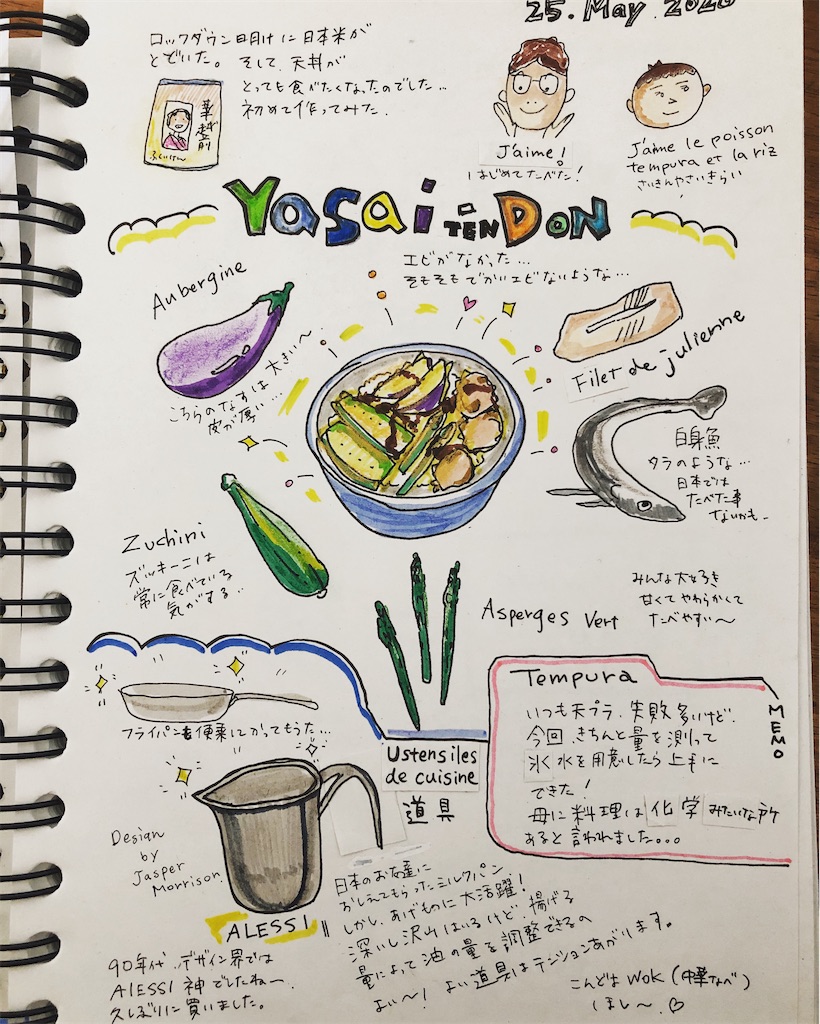 25. May. 2020
ロックダウン明けに日本米が
とどいた。そして、天丼が
とっても食べたくなったのでした…
初めて作ってみた.
華越前
ふくいけん
J'aime!
はじめてたべた!
J'aime le poisson
tempura et la riz
さいきんやさいきらい
Yasai TEN DON
エビがなかった…
そもそもでかいエビないような…
Aubergine
こちらのなすは大きい〜
皮が厚い…
Filet de julienne
白身魚
タラのような…
日本では
たべた事
ないかも..
Zuchini
ズッキーニは
常に食べている
気がする..
Asperges Vert
みんな大好き
甘くてやわらかくて
たべやすい〜
フライパンも便乗にかってもうた…
Ustensiles
de cuisine
道具
Tempura
MEMO
いつも天プラ、失敗多いけど、
今回、きちんと量を測って
氷水を用意したら上手に
できた!
母に料理は化学みたいな所
あると言われました。。。
Design
by
Jasper
Morrison.
ALESSI
90年代、デザイン界では
AlESSI 神でしたねー.
久しぶりに買いました。
日本のお友達に
おしえてもらったミルクパン
しかし、あげものに大活躍!
深いし沢山はいるけど、揚げる
量によって油の量を調整できるの
よい〜! よい道具はテンションあがります。
こんどは Wok (中華なべ)
ほし〜.♡